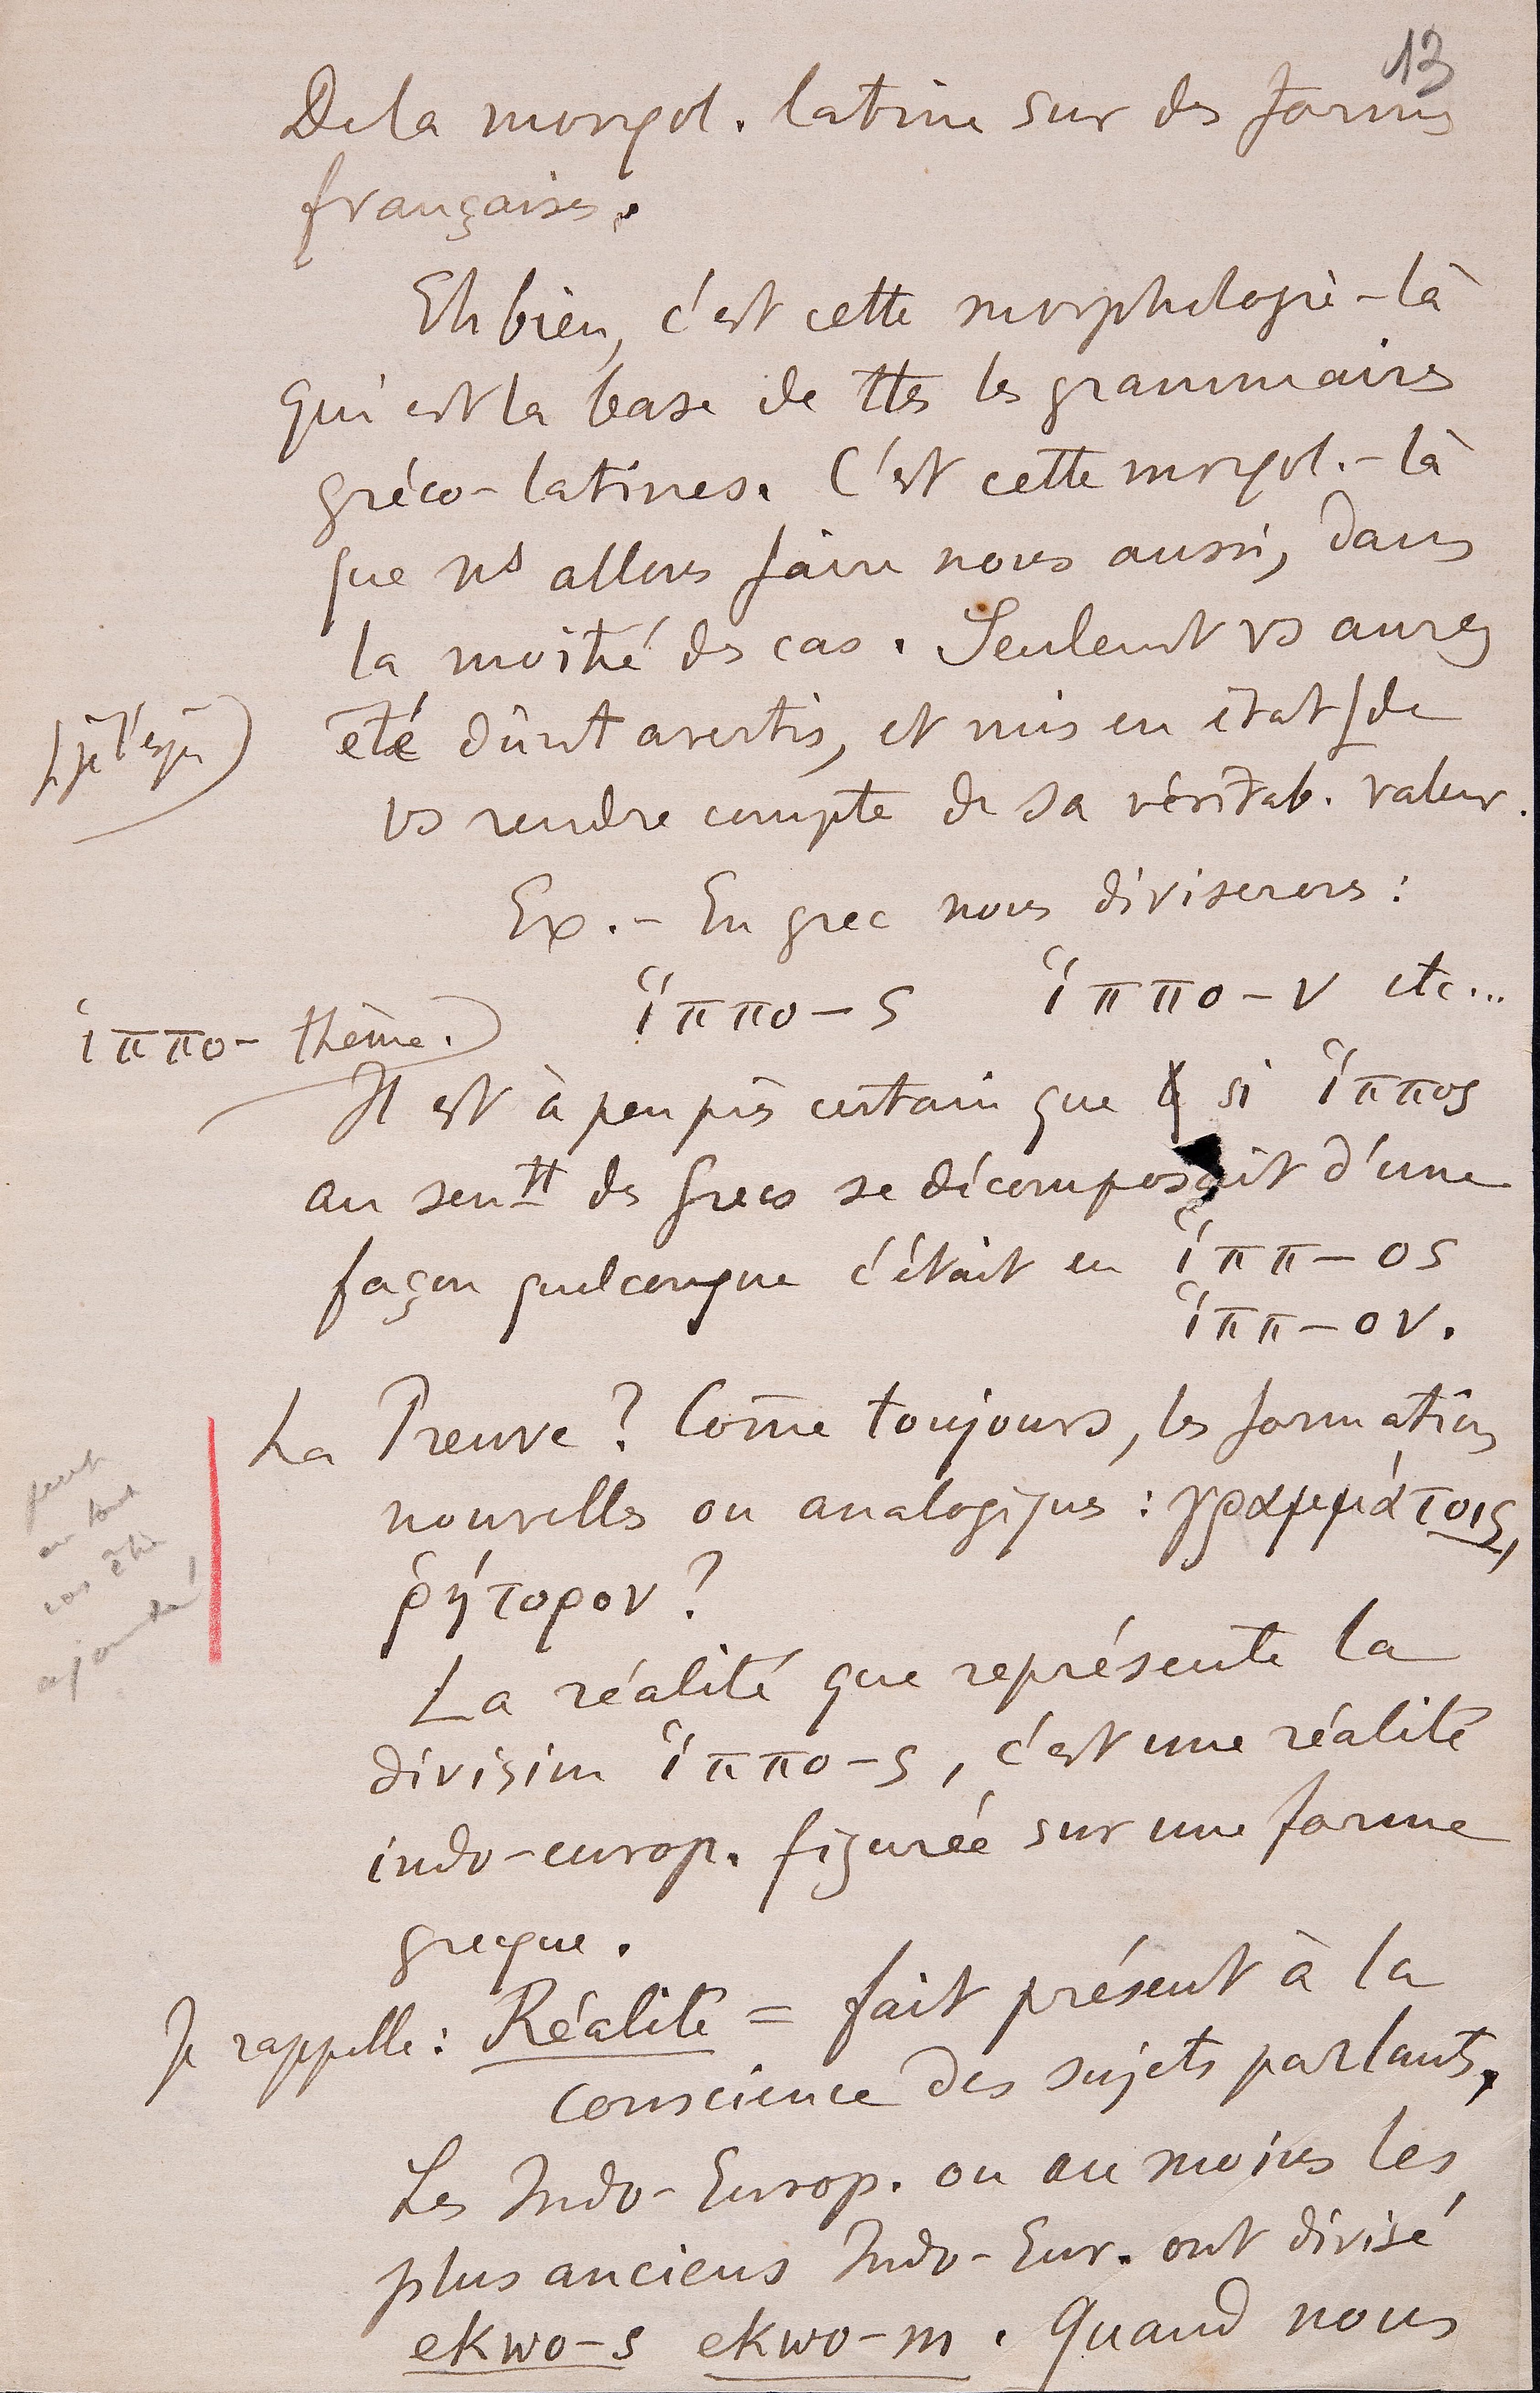 13
De la morφol. latine sur des formes
françaises.
Eh bien, c'est cette morphologie-là
qui est la base de ttes les grammaires
gréco-latines. C'est cette morφol.-là
que ns allons faire nous aussi, dans
la moitié des cas. Seulemt vs aurez
été dûmt avertis, et mis en état ⌊de
⌊je l'espère)
vs rendre compte de sa véritab. valeur.
Ex. - En grec nous diviserons :
ἵππο-ς ἵππο-ν etc...
ἱππο- thème.)
Il est à peu près certain que si ἵππος
au sentt des Grecs se décomposait d'une
façon quelconque c'était en ἵππ-ος
ἵππ-ον.
La Preuve ? Come toujours, les formations
nouvelles ou analogiques : γραμμάτοις,
ῥήτορον ?
peut
en tout
cas être
ajouté !
La réalité que représente la
division ἵππο-ς, c'est une réalité
indo-europ. figurée sur une forme
grecque.
Je rappelle : Réalité = fait présent à la
conscience des sujets parlants.
Les Indo-Europ. ou au moins les
plus anciens Indo-Eur. ont divisé
ekwo-s ekwo-m. Quand nous